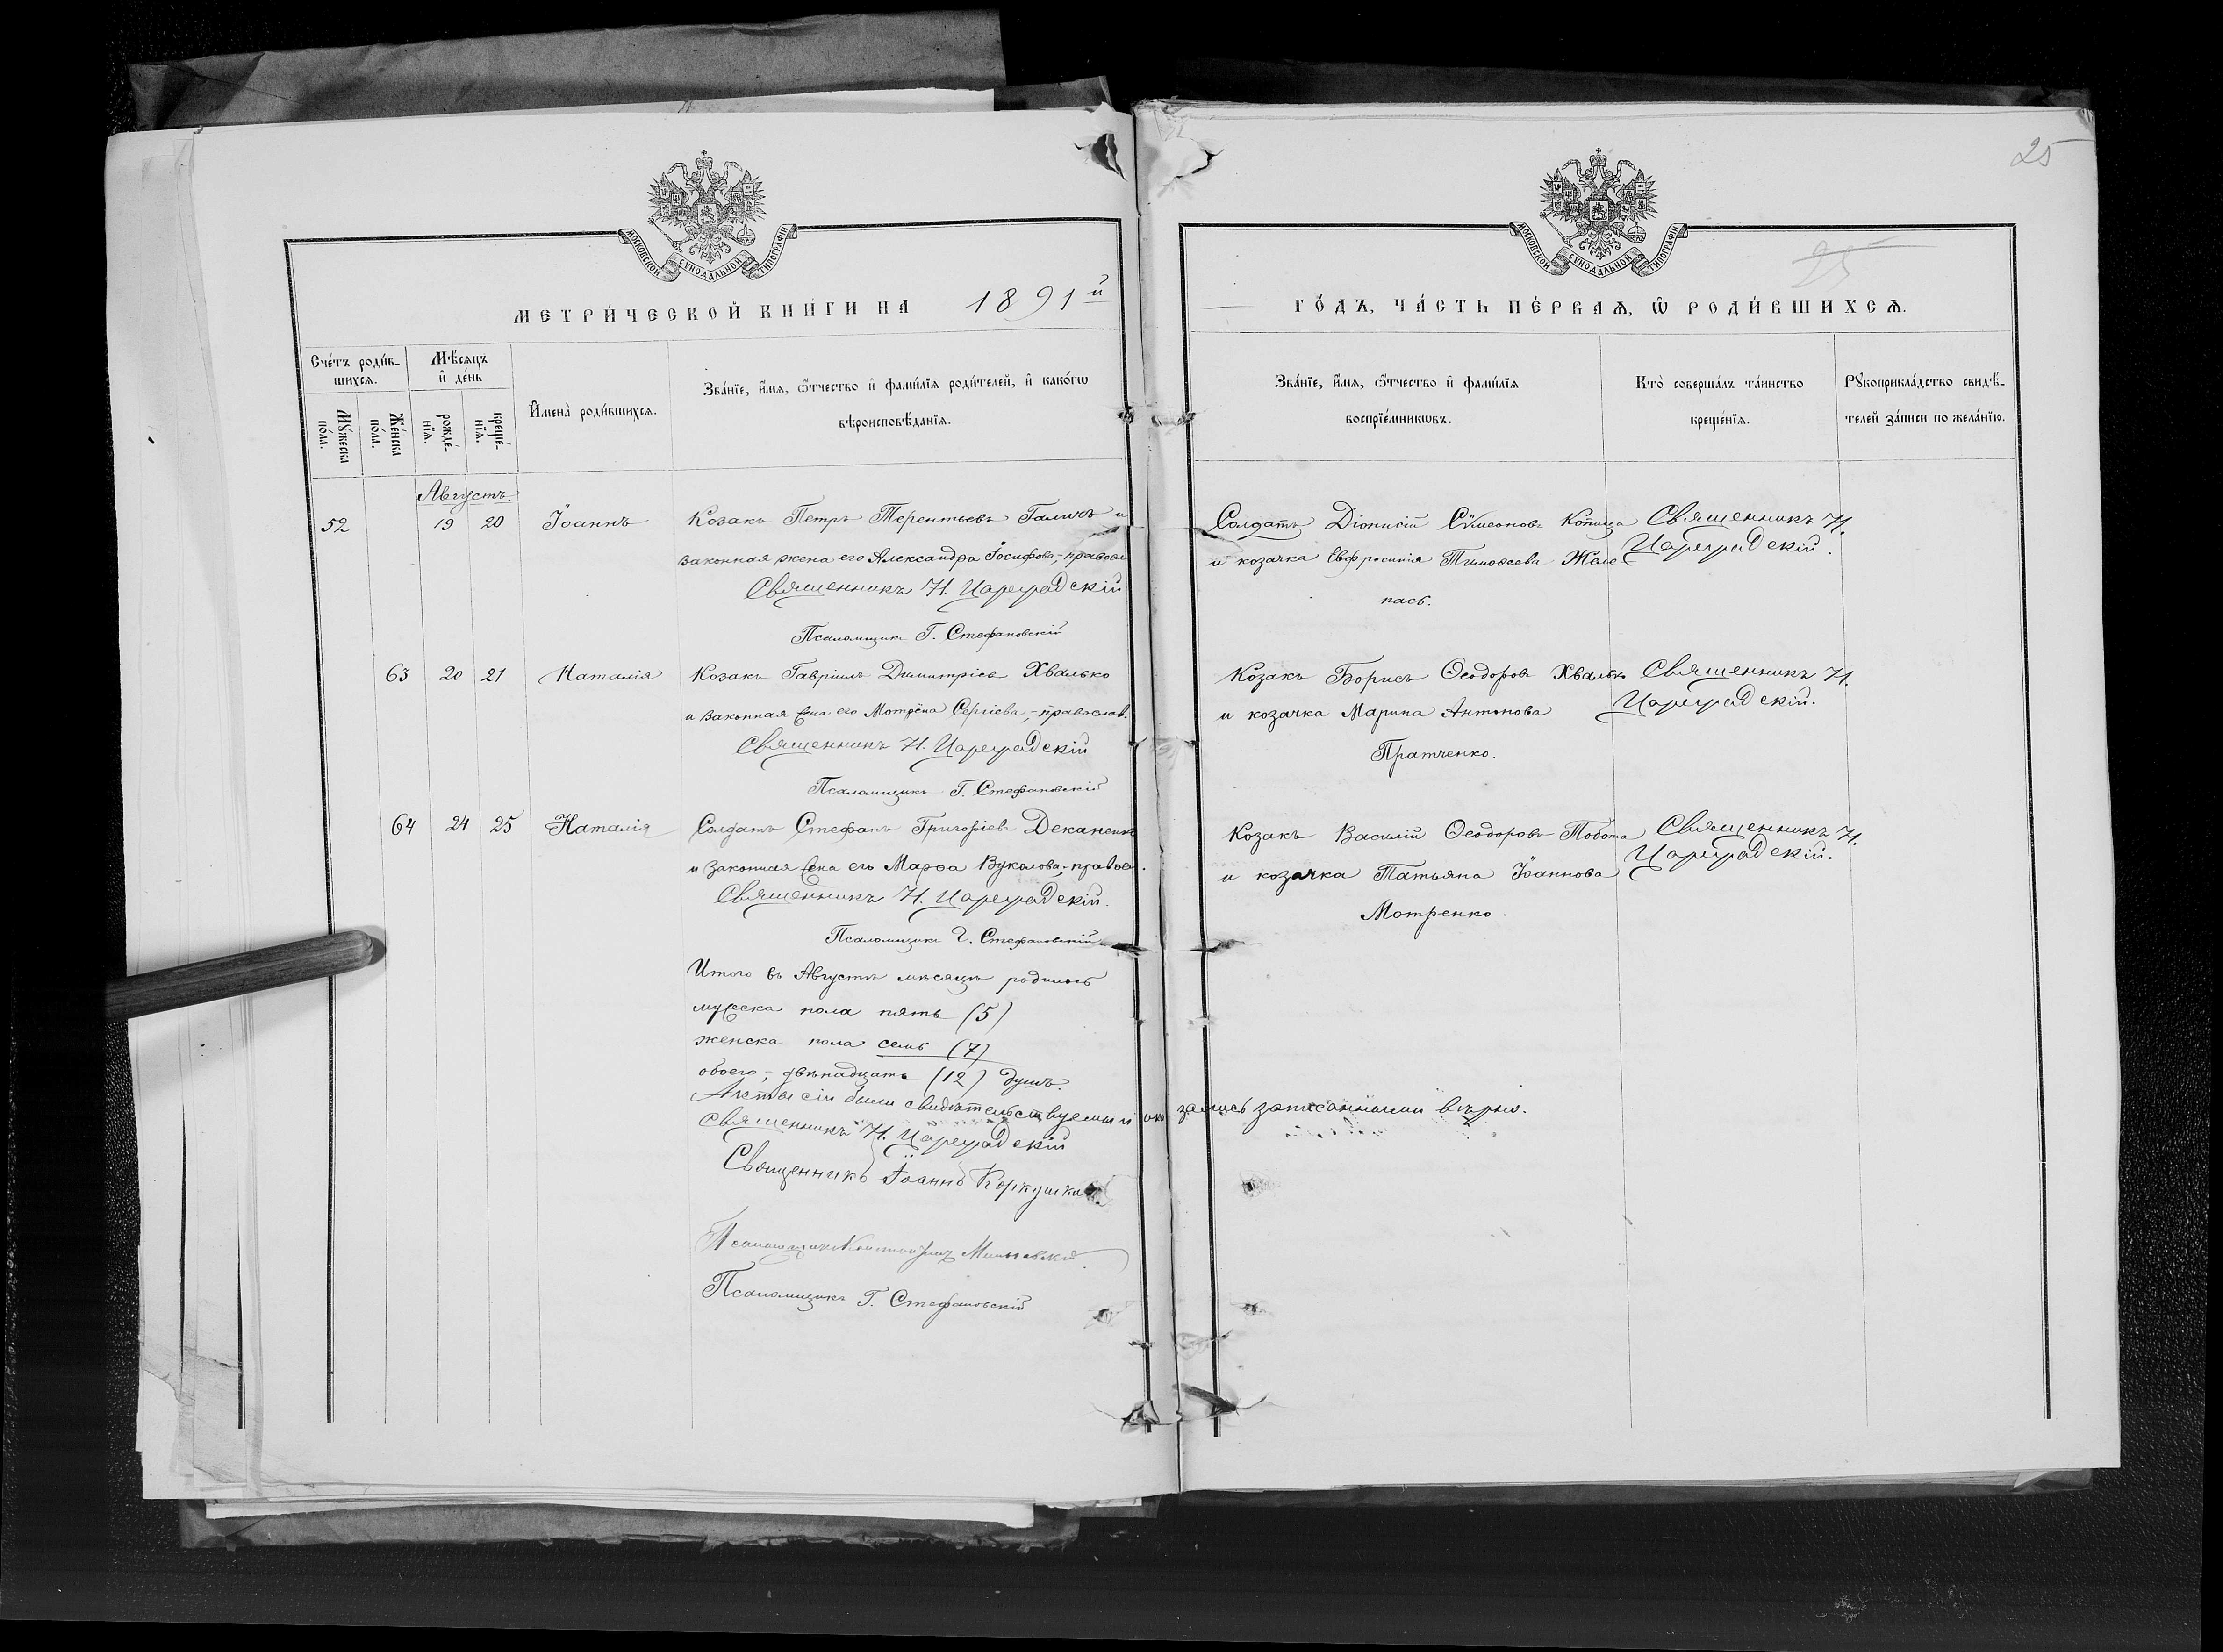 25
МОСКОВСКОЙ СУНОДАЛЬНОЙ ТИПОГРАФІИ
МОСКОВСКОЙ СУНОДАЛЬНОЙ ТИПОГРАФІИ
25
МЕТРИ́ЧЕСКОЙ КНИ́ГИ НА 1891й
ГО́ДЪ, ЧА́СТЬ ПЕ́РВАѦ, Ѡ РОДИ́ВШИХСѦ.
Сче́тъ роди́в-
шихсѧ.
Мѣ́сѧцъ
и҆ де́нь
Мꙋ́жеска по́ла.
Же́нска по́ла.
рожде́-нїѧ.
креще́-нїѧ.
И҆мена̀ роди́вшихсѧ.
Зва́нїе, и҆́мѧ, ѻ҆́тчество и҆ фами́лїѧ роди́телей, и҆ како́гѡ
вѣроисповѣ́данїѧ.
Зва́нїе, и҆́мѧ, ѻ҆́тчество и҆ фами́лїѧ
воспрїе́мникѡвъ.
Кто̀ соверша́лъ та́инство
креще́нїѧ.
Рꙋкоприкла́дство свидѣ́-
телей за́писи по жела́нїю.
Августъ.
52 19 20 Іоаннъ Козакъ Петръ Терентьевъ Галичъ и
законная жена его Александра Іосифова, – правосл
Священникъ Н. Цареградскій
Псаломщикъ Г. Стефановскій
Солдатъ Діонисій Сѵмеоновъ Копица
и козачка Евфросинія Тимоѳеева Желе
пасъ.
Священникъ Н.
Цареградскій.
63 20 21 Наталія Козакъ Гавріилъ Димитріев Хвалько
и законная жена его Мотрона Сергіева, – православ.
Священникъ Н. Цареградскій
Псаломщикъ Г. Стефановскій
Козакъ Борисъ Ѳеодоровъ Хвалько
и козачка Марина Антонова
Пратченко.
Священникъ Н.
Цареградскій.
64 24 25 Наталія Солдатъ Стефанъ Григоріевъ Деканенко
и законная жена его Марѳа Вуколова, – правос.
Священникъ Н. Цареградскій.
Псаломщикъ Г. Стефановскій
Козакъ Василій Ѳеодоровъ Тобота
и козачка Татьяна Іоаннова
Мотренко.
Священникъ Н.
Цареградскій.
Итого въ Августѣ мѣсяцѣ родилось
мужеска пола пять (5)
женска пола семь (7)
обоего, – двѣнадцать (12) душъ.
Акты сіи были свидѣтельствуемы и оказались записанными вѣрно.
Священникъ Н. Цареградскій
Священникъ Іоаннъ Коркушка
Псаломщикъ
Псаломщикъ Г. Стефановскій